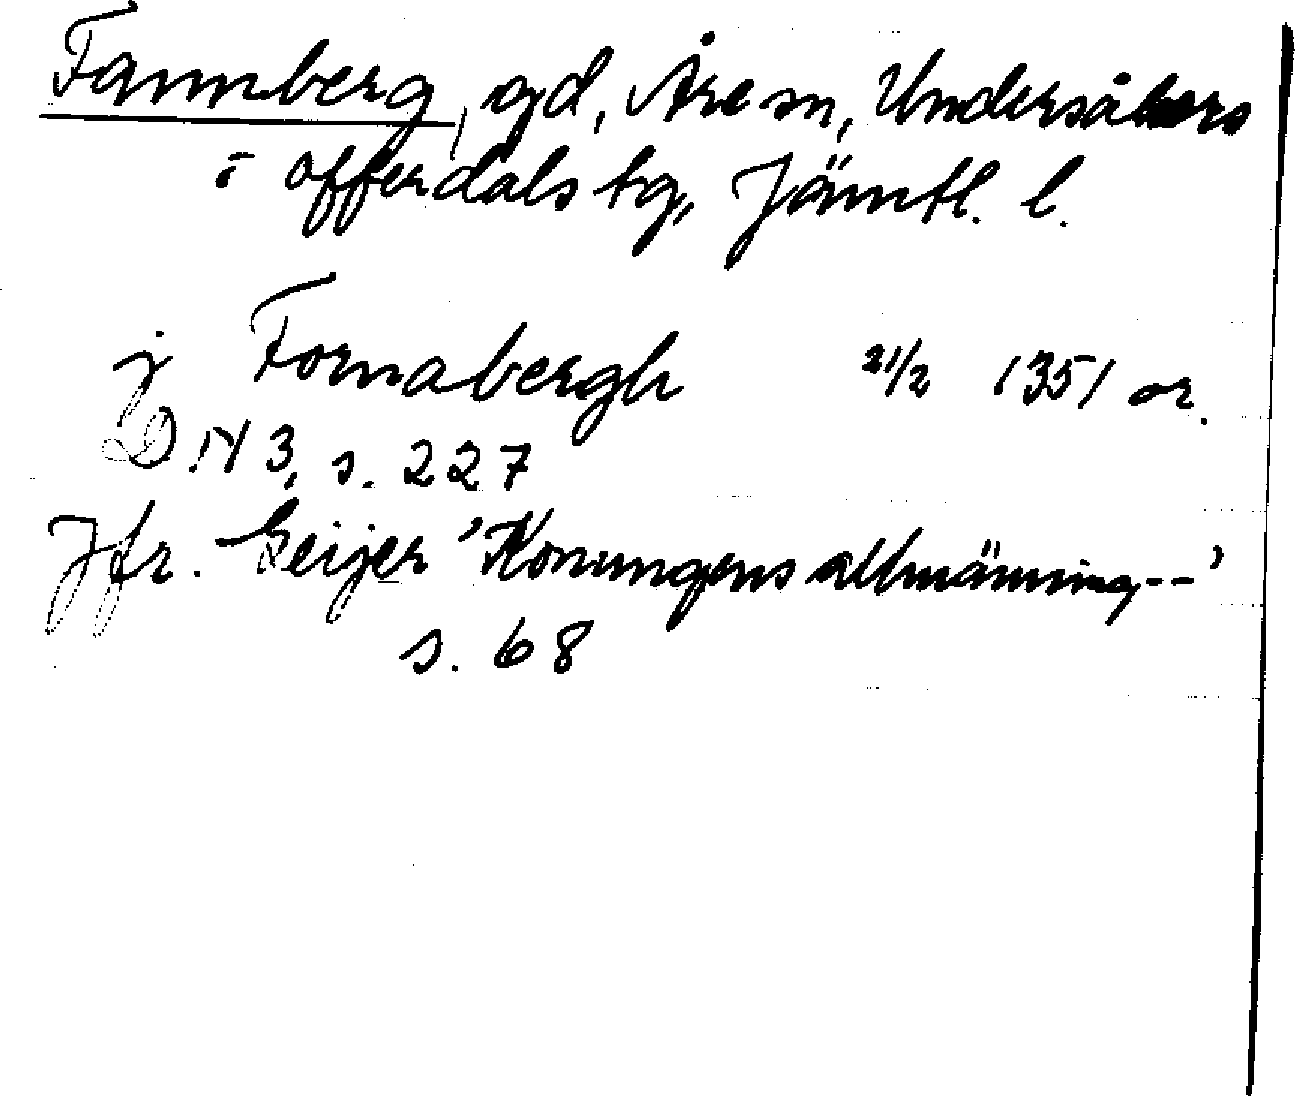 Fannberg, gd, Åre sn, Undersåkers
o Offerdals tg, Jämtl. l.
j Fornabergh 21/2 1351 or.
DN 3, s. 227
Jfr. Geijer 'Konungens allmänning--'
s. 68